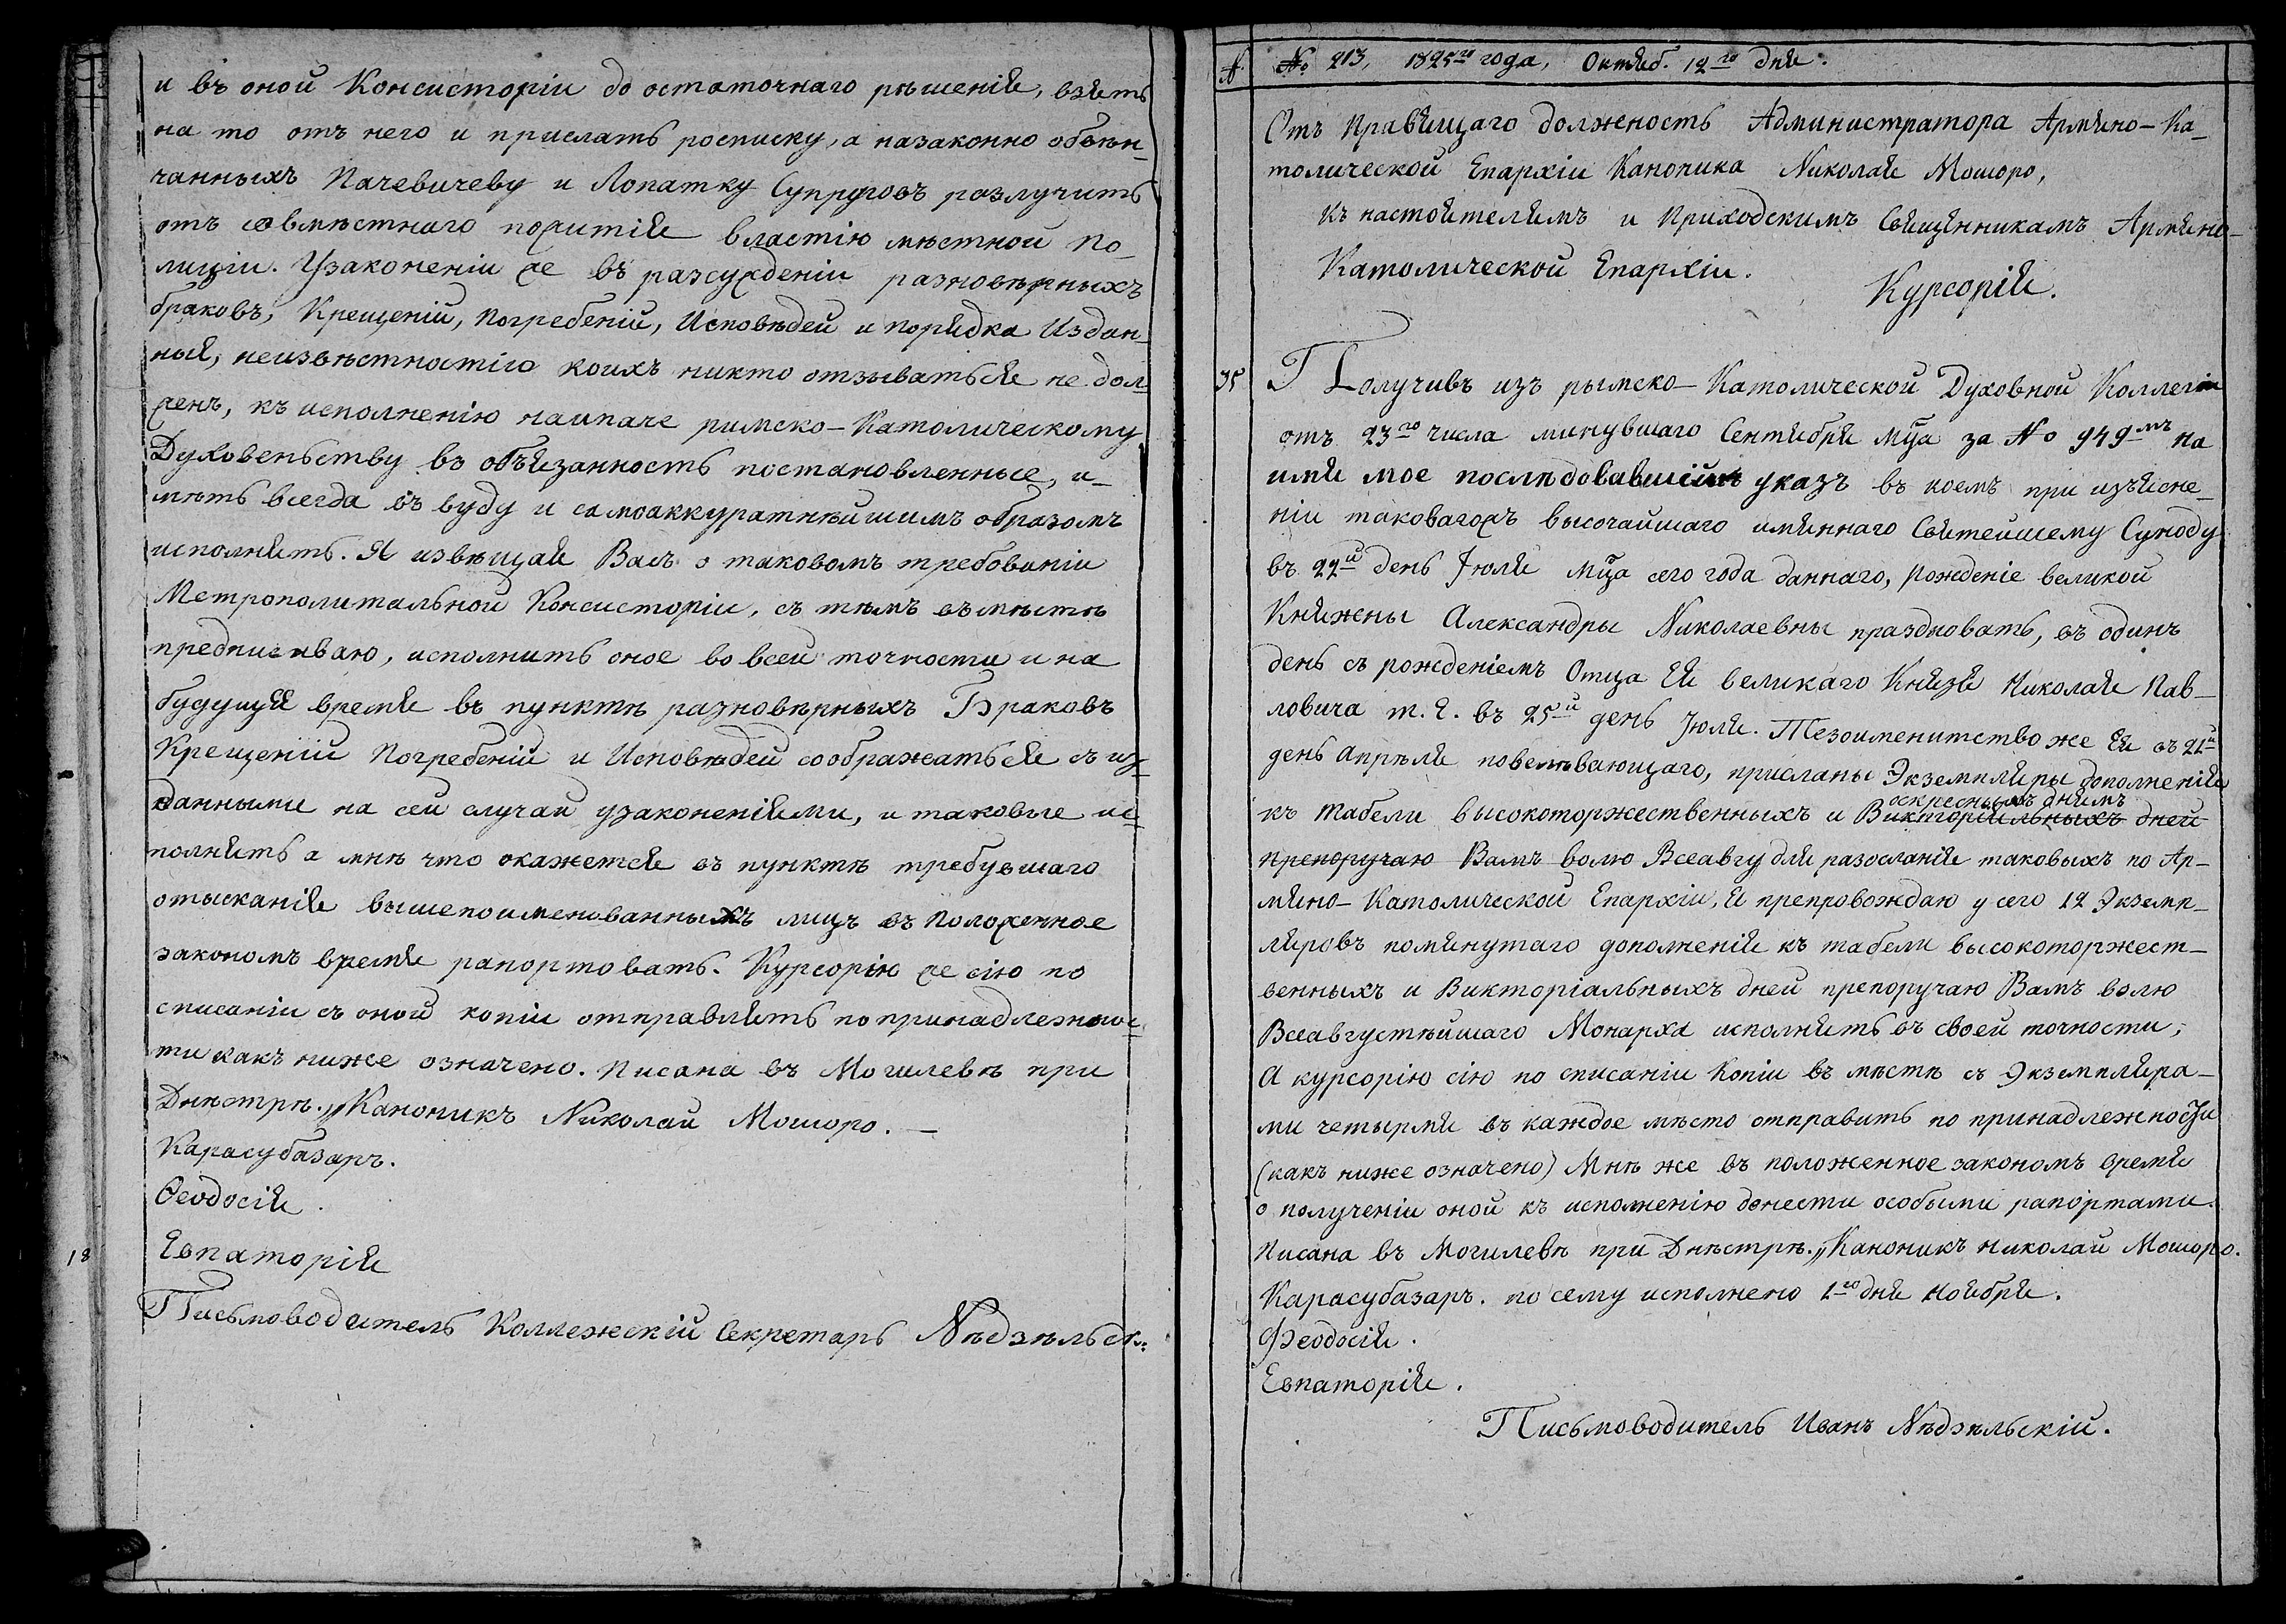 и въ оной Консисторіи до остаточнаго рѣшенія, взять
на то отъ него и прислать росписку, а назаконно обвѣн-
чанныхъ Пачевичеву и Лопатку Супруговъ разлучить
отъ совмѣстнаго пожитія властію мѣстной По-
лиціи. Узаконеніи же въ разсужденіи разновѣрныхъ
браковъ, Крещеній, Погребеній, Исповѣдей и порядка Издан-
ныя, неизвѣстностію коихъ никто отзываться не дол-
женъ, къ исполненію наипаче римско-Католическому
Духовеньству въ обязанность постановленные, и-
мѣть всегда въ вуду и самоаккуратнѣйшимъ образомъ
исполнять. Я извѣщая Васъ о таковомъ требованіи
Метрополитальной Консисторіи, съ тѣмъ въмѣстѣ
предписиваю, исполнить оное во всей точности и на
будущее время въ пунктѣ разновѣрныхъ Браковъ
Крещеній Погребеній и Исповѣдей соображаться съ из-
данными на сей случай узаконеніями, и таковые ис-
полнять а мнѣ что окажется въ пунктѣ требувшаго
отысканія вышепоименованныхъ лицъ въ Положенное
закономъ время рапортовать. Курсорію же сію по
списаніи съ оной копіи отправлять по принадлежнос-
ти какъ ниже означено. Писана въ Могилевѣ при
Днѣстрѣ.„ Каноникъ Николай Мошоро. —
Карасубазаръ.
Ѳеодосія.
18 Евпаторія
Письмоводитель Коллежскій Секретарь Нѣдзѣльск:
№ 213, 1825го года, Октяб. 12го дня.
Отъ Правящаго должность Администратора Армяно-Ка-
толической Епархіи Каноника Николая Мошоро,
Къ настоятелямъ и Приходскимъ Священникамъ Армяно-
Католической Епархіи.
Курсорія.
35 Получивъ изъ рымско-Католической Духовной Коллегіи
отъ 23го числа минувшаго Сентября мца за № 949мъ на
имя мое послѣдовавшій указъ въ коемъ при изъясне-
ніи таковагожъ высочайшаго имяннаго Святейшему Суноду
въ 22й день Іюля мца сего года даннаго, рожденіе великой
Княжны Александры Николаевны праздновать, въ одинъ
день съ рожденіемъ Отца Ея великаго Князя Николая Пав-
ловича т. е. въ 25й день Іюля. Тезоименитство же Ея въ 21й
день Апрѣля повелѣвающаго, присланы Экземпляры дополненія
къ табели высокоторжественныхъ и Викторіяльныхъ дней
оскреснымъ днямъ
препоручаю Вамъ волю Всеавгу для разосланія таковыхъ по Ар-
мяно-Католической Епархіи, Я препровождаю у сего 12 Экземп-
ляровъ помянутаго дополненія къ табели высокоторжест-
венныхъ и Викторіальныхъ дней препоручаю Вамъ волю
Всеавгустѣйшаго Монарха исполнять въ своей точности,
А курсорію сію по списаніи Копіи въ мѣстѣ съ Экземпляра-
ми четырмя въ каждое мѣсто отправить по принадлежности
(какъ ниже означено) Мнѣ же въ положенное закономъ время
о полученіи оной къ исполненію донести особыми рапортами.
Писана въ Могилевѣ при Днѣстрѣ.„ Каноникъ Николай Мошоро.
Карасубазаръ. по сему исполнено 1го дня Ноября.
Феодосія.
Евпаторія.
Письмоводитель Иванъ Нѣдзѣльскій.